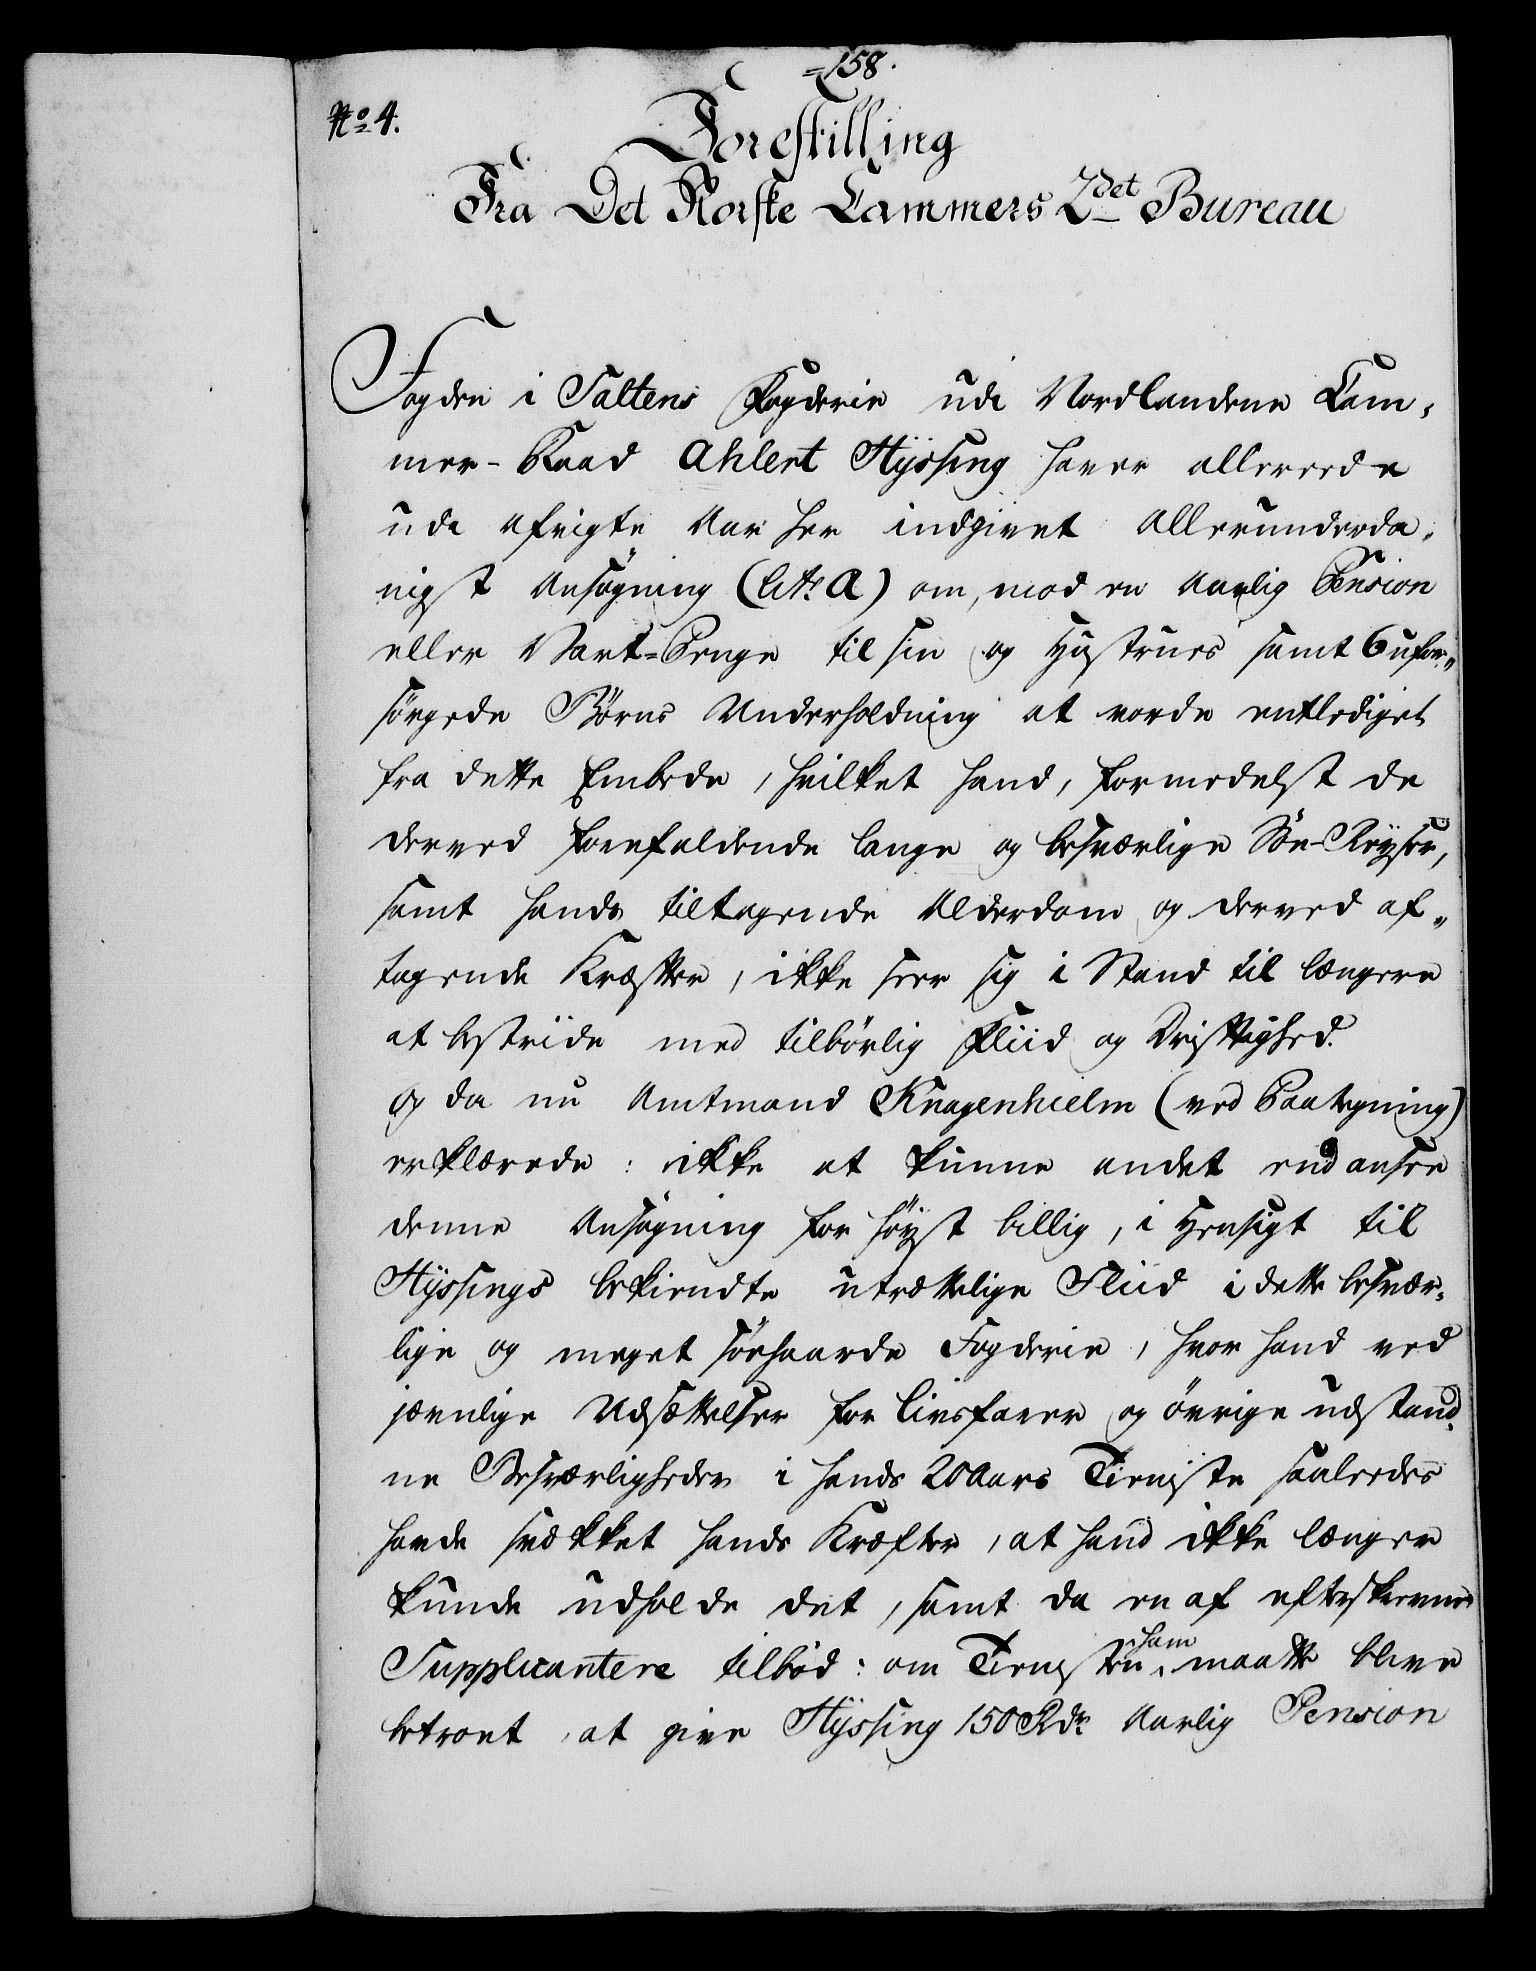 =158.
No 4.
Forestilling
Fra Det Norske Cammers 2det Bureau
Fogden i Saltens Fogderie udi Nordlandene Cam-
mer-Raad Ahlert Hÿssing haver allereede
udi afvigte Aar her indgivet allerunderda-
nigst Ansøgning (Litr A) om, mod en Aarlig Pension
eller Vart-Penge til sin og Hustrues samt 6 ufor-
sørgede Børns Underholdning at vorde entlediget
fra dette Embede, hvilket hand, formedelst de
derved forefaldende lange og besværlige Søe-Reÿser,
samt hands tiltagende Alderdom og derved af-
tagende Kræfter, ikke seer sig i Stand til længere
at bestriide med tilbørlig Fliid og Drifttighed.
Og da nu Amtmand Knagenhielm (ved Paategning)
erklærede: ikke at kunne andet end ansee
denne Ansøgning for høÿst billig, i Hensigt til
Hÿssings bekiendte utrættelige Fliid i dette besvær-
lige og meget søehaarde Fogderie, hvor hand ved
jævnlige Udsættelser for Livsfarer og øvrige udstand-
ne Besværligheder i hands 20 Aars Tieniste saaleedes
havde svækket hands Kræfter, at hand ikke længer
kunde udholde det, samt da en af efterskrevne
Supplicantere tilbød: om Tienisten ham maatte blive
betroet, at give Hÿssing 150 Rdr Aarlig Pension